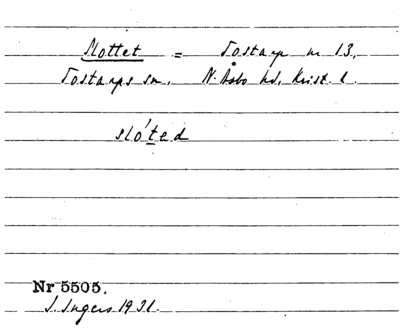 Slottet = Tostarp nr 13,
Tostarps sn, N. Åsbo hd, Krist. l.
slóted
Nr 5505.
I. Ingers 1931.